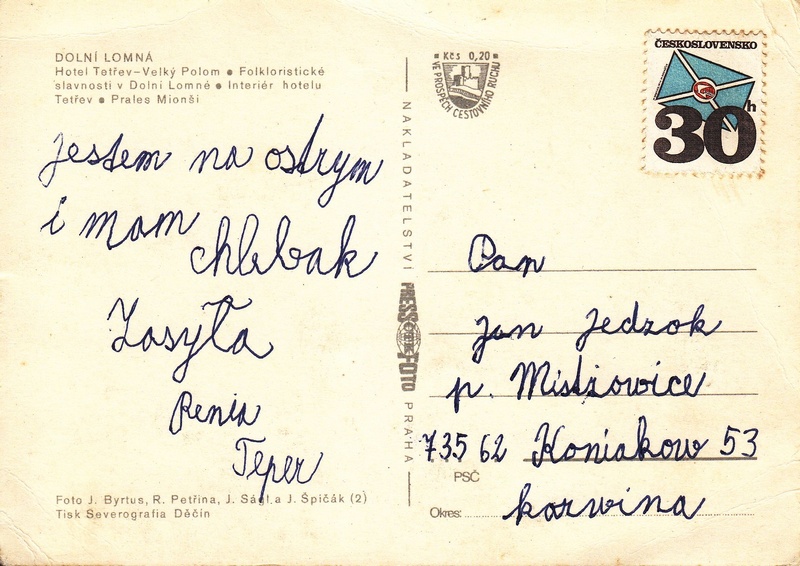 DOLNÍ LOMNÁ
Hotel Tetřev–Velký Polom ● Folkloristické
slavnosti v Dolní Lomné ● Interiér hotelu
Tetřev ● Prales Mionší
Jestem na ostrym
i mam
chlebak
Zasyła
Renia
Teper
Foto J. Byrtus, R. Petřina, J. Ságl a J. Špičák (2)
Tisk Severografia Děčín
NAKLADATELSTVÍ
PRESSFOTO
PRAHA
Kčs 0,20
VE PROSPĚCH CESTOVNÍHO RUCHU
ČESKOSLOVENSKO
30h
Pan
Jan Jedzok
p. Mistżowice
735 62 Koniakow 53
PSČ
Okres: karwina